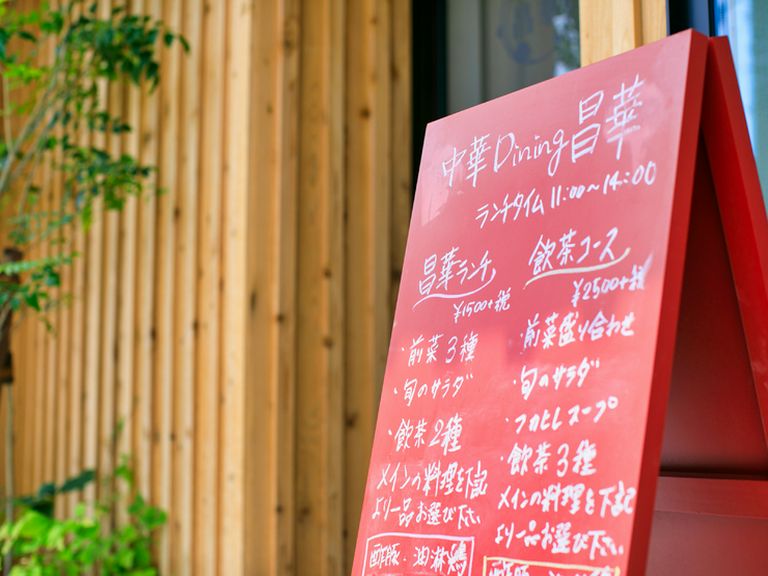 中華Dining昌華
ランチタイム 11:00～14:00
昌華ランチ
¥1500+税
・前菜3種
・旬のサラダ
・飲茶2種
メインの料理を下記
より一品お選び下さい
酢豚・油淋鶏
飲茶コース
¥2500+税
・前菜盛り合わせ
・旬のサラダ
・フカヒレスープ
・飲茶3種
メインの料理を下記
より一品お選び下さい